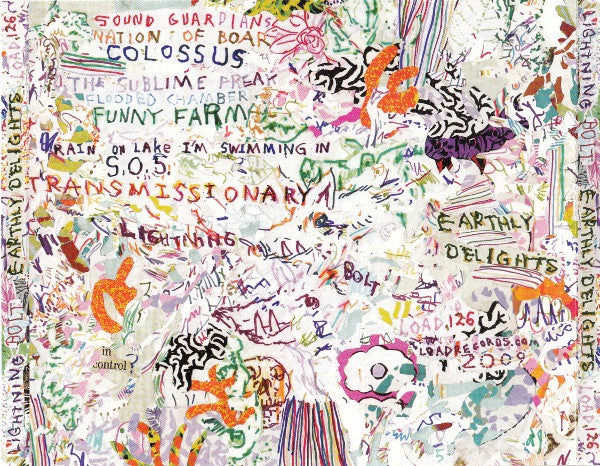 SOUND GUARDIANS
NATION OF BOAR
COLOSSUS
THE SUBLIME FREAK
FLOODED CHAMBER
FUNNY FARM
RAIN ON LAKE I'M SWIMMING IN
S.O.S.
TRANSMISSIONARY
LIGHTNING
BOLT
EARTHLY
DELIGHTS
LOAD 126
LOADRECORDS.COM
2009
in
control
LIGHTNING BOLT EARTHLY DELIGHTS LOAD 126
LIGHTNING BOLT EARTHLY DELIGHTS LOAD 126